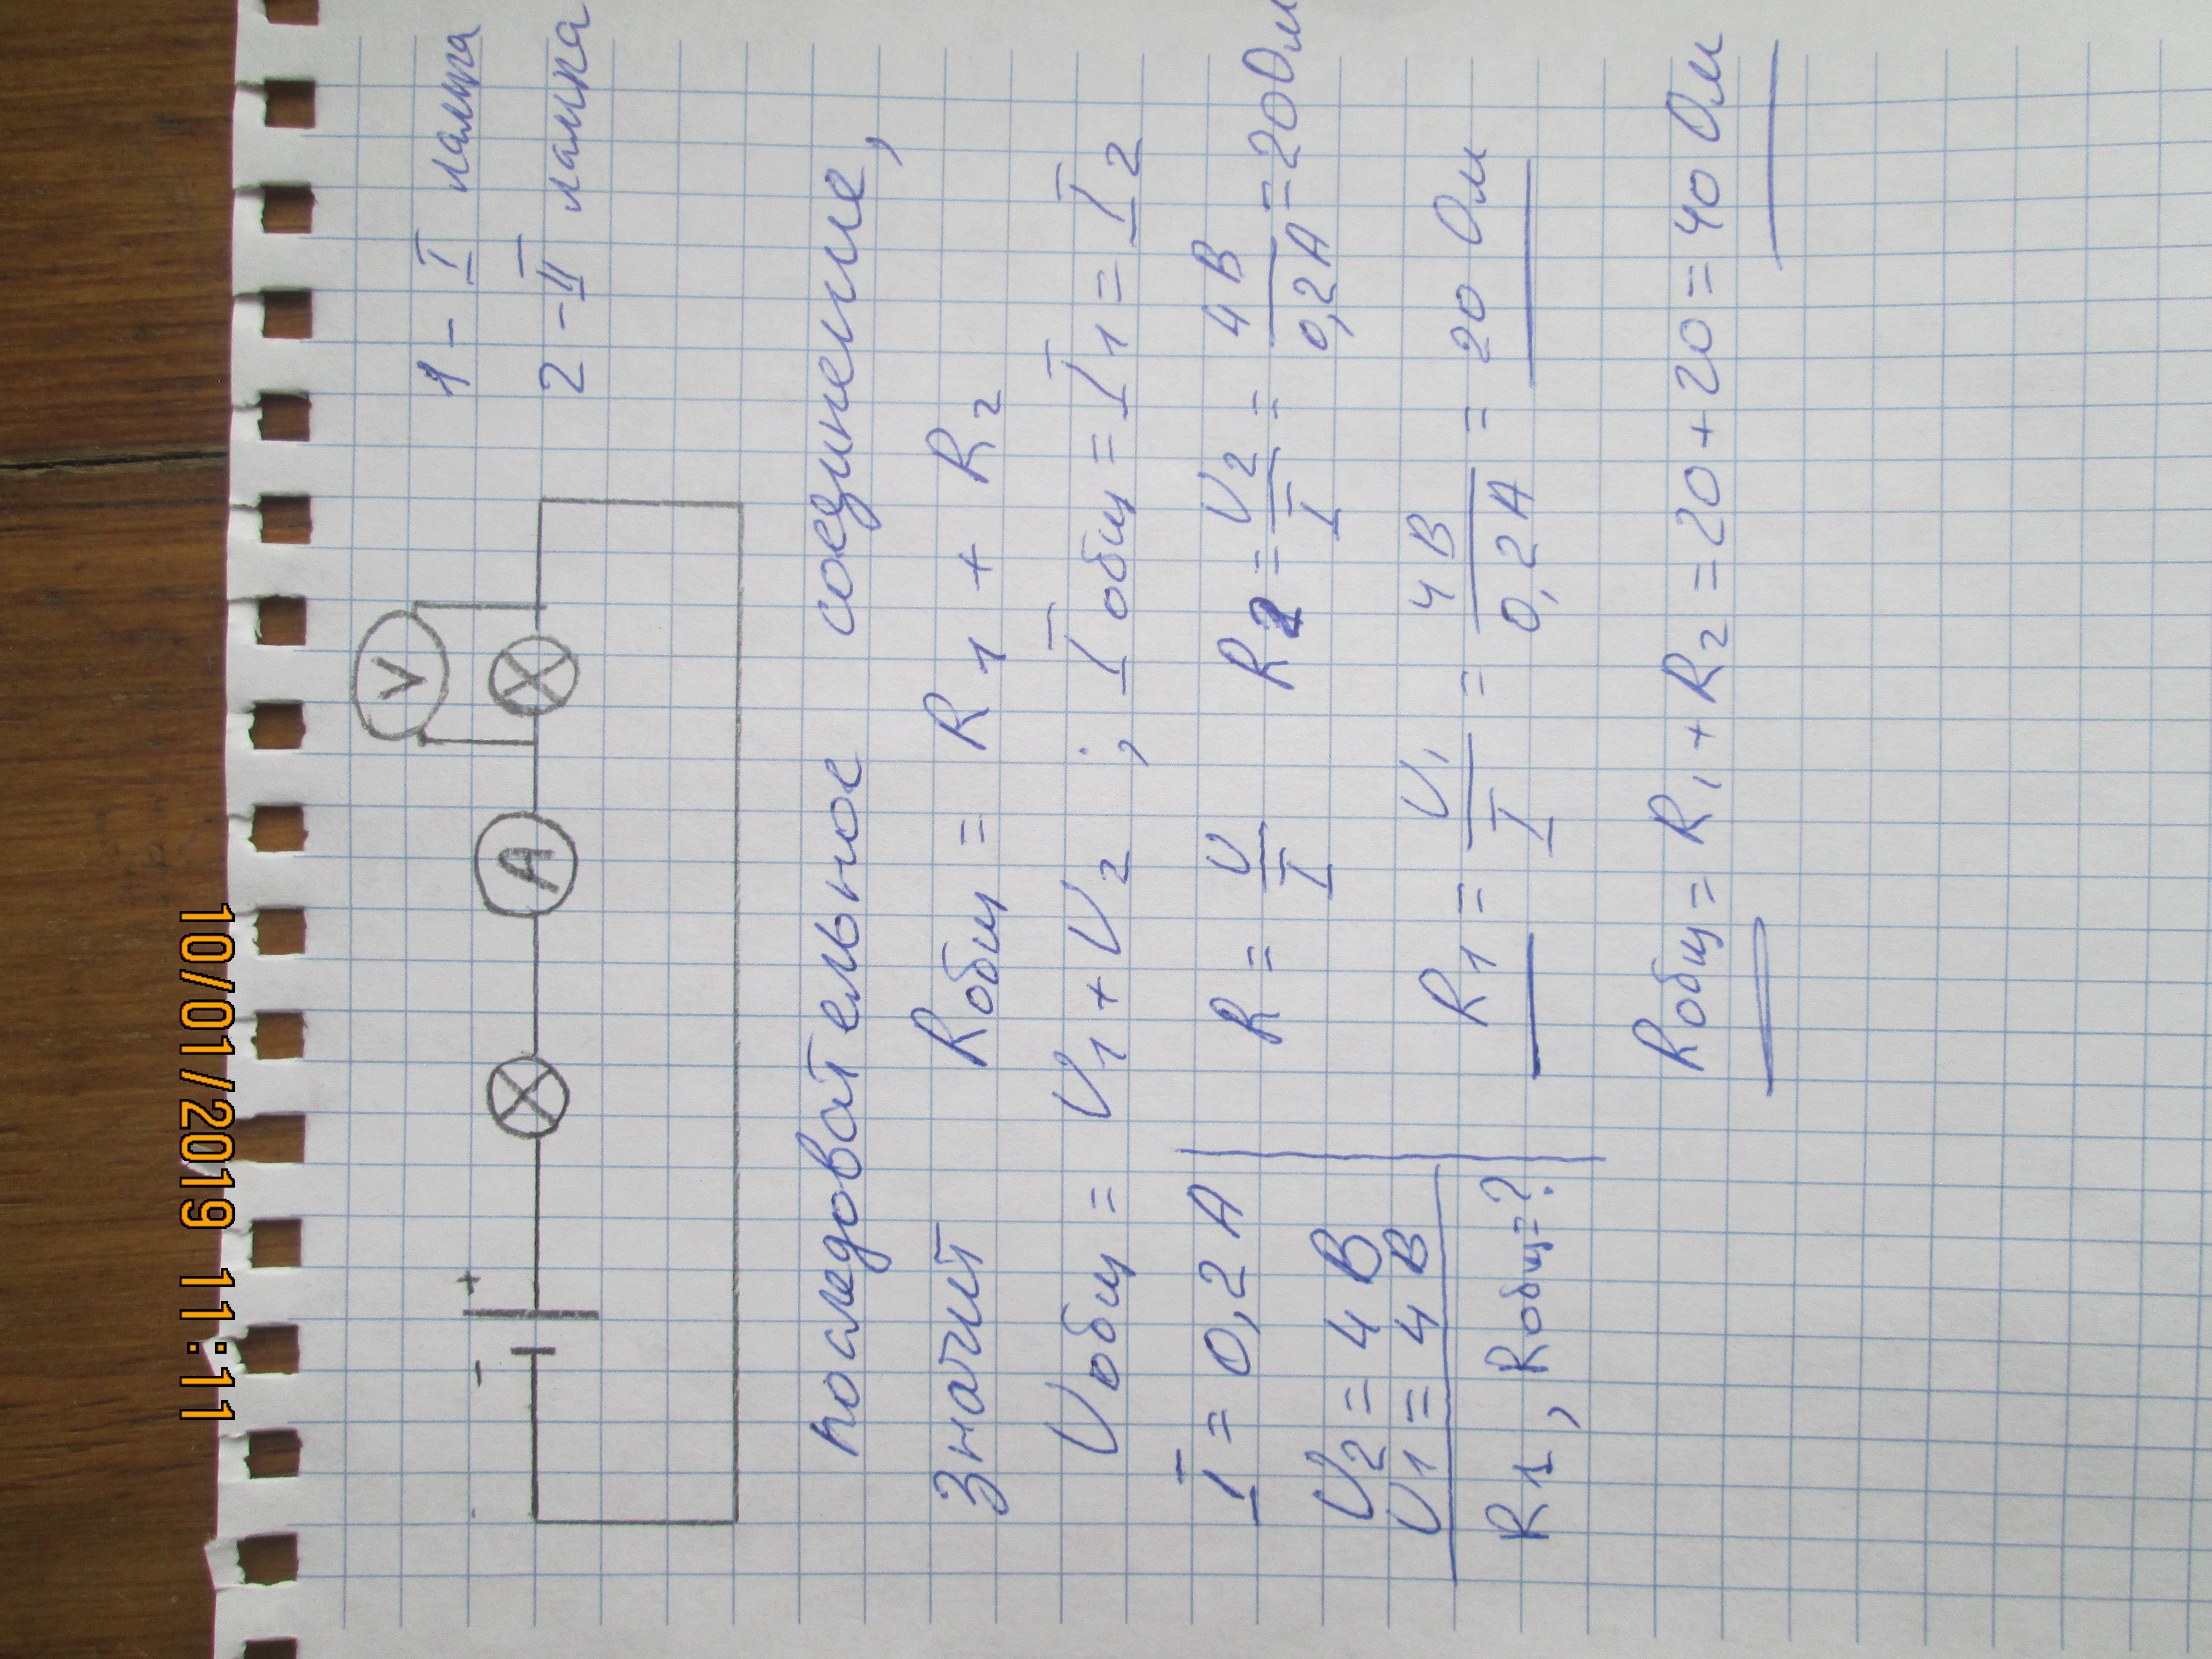 10/01/2019 11:11
1 - I лампа
2 - II лампа
- +
A
V
последовательное соединение,
значит Rобщ = R1 + R2
Uобщ = U1 + U2 ; Iобщ = I1 = I2
I = 0,2 А
U2 = 4 В
U1 = 4 В
R1, Rобщ=?
R = U/I R2 = U2/I = 4 В/0,2 А = 20 Ом
R1 = U1/I = 4 В/0,2 А = 20 Ом
Rобщ = R1 + R2 = 20 + 20 = 40 Ом